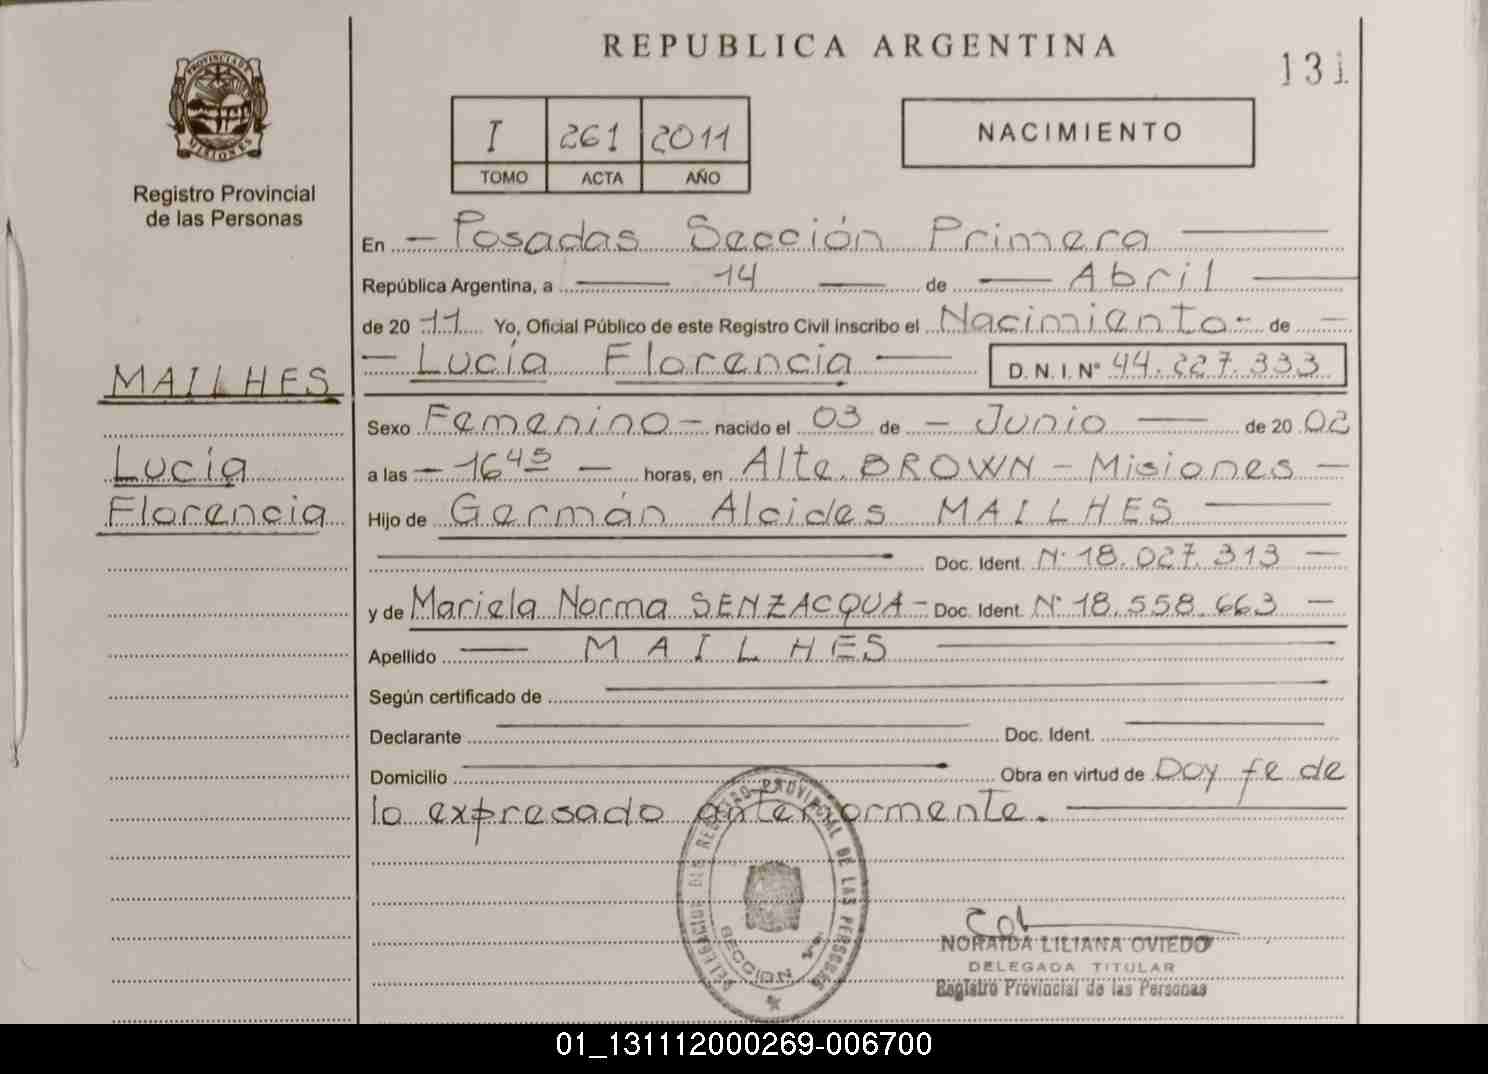 REPUBLICA ARGENTINA
131
PROVINCIA DE
MISIONES
Registro Provincial
de las Personas
I 261 2011
TOMO ACTA AÑO
NACIMIENTO
En — Posadas Sección Primera —
República Argentina, a — 14 — de — Abril —
de 20 11 Yo, Oficial Público de este Registro Civil inscribo el Nacimiento - de —
— Lucía Florencia — D. N. I. Nº 44.227.333
MAILHES
Lucía
Florencia
Sexo Femenino — nacido el 03 de — Junio — de 20 02
a las — 16 45 — horas, en Alte. BROWN - Misiones —
Hijo de Germán Alcides MAILHES —
Doc. Ident. Nº 18.027.313 —
y de Mariela Norma SENZACQUA - Doc. Ident. Nº 18.558.663 —
Apellido — MAILHES —
Según certificado de
Declarante Doc. Ident.
Domicilio Obra en virtud de Doy fe de
lo expresado anteriormente.
DELEGACION DEL REGISTRO PROVINCIAL DE LAS PERSONAS
SECCION 1ra.
NORAIDA LILIANA OVIEDO
DELEGADA TITULAR
Registro Provincial de las Personas
01_131112000269-006700